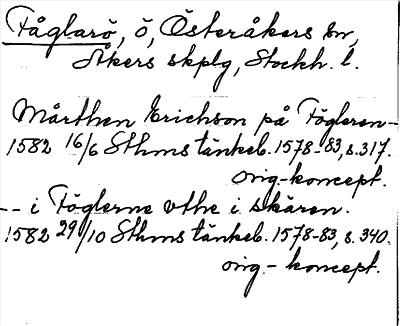 Fåglarö, ö, Österåkers sn,
Åkers skplg, Stockh. l.
Mårthen Erichson på Fögleren -
1582 16/6 Sthms tänkeb. 1578-83, s. 317.
orig-koncept.
-- i Föglerne vthe i skären.
1582 29/10 Sthms tänkeb. 1578-83, s. 340.
orig.- koncept.